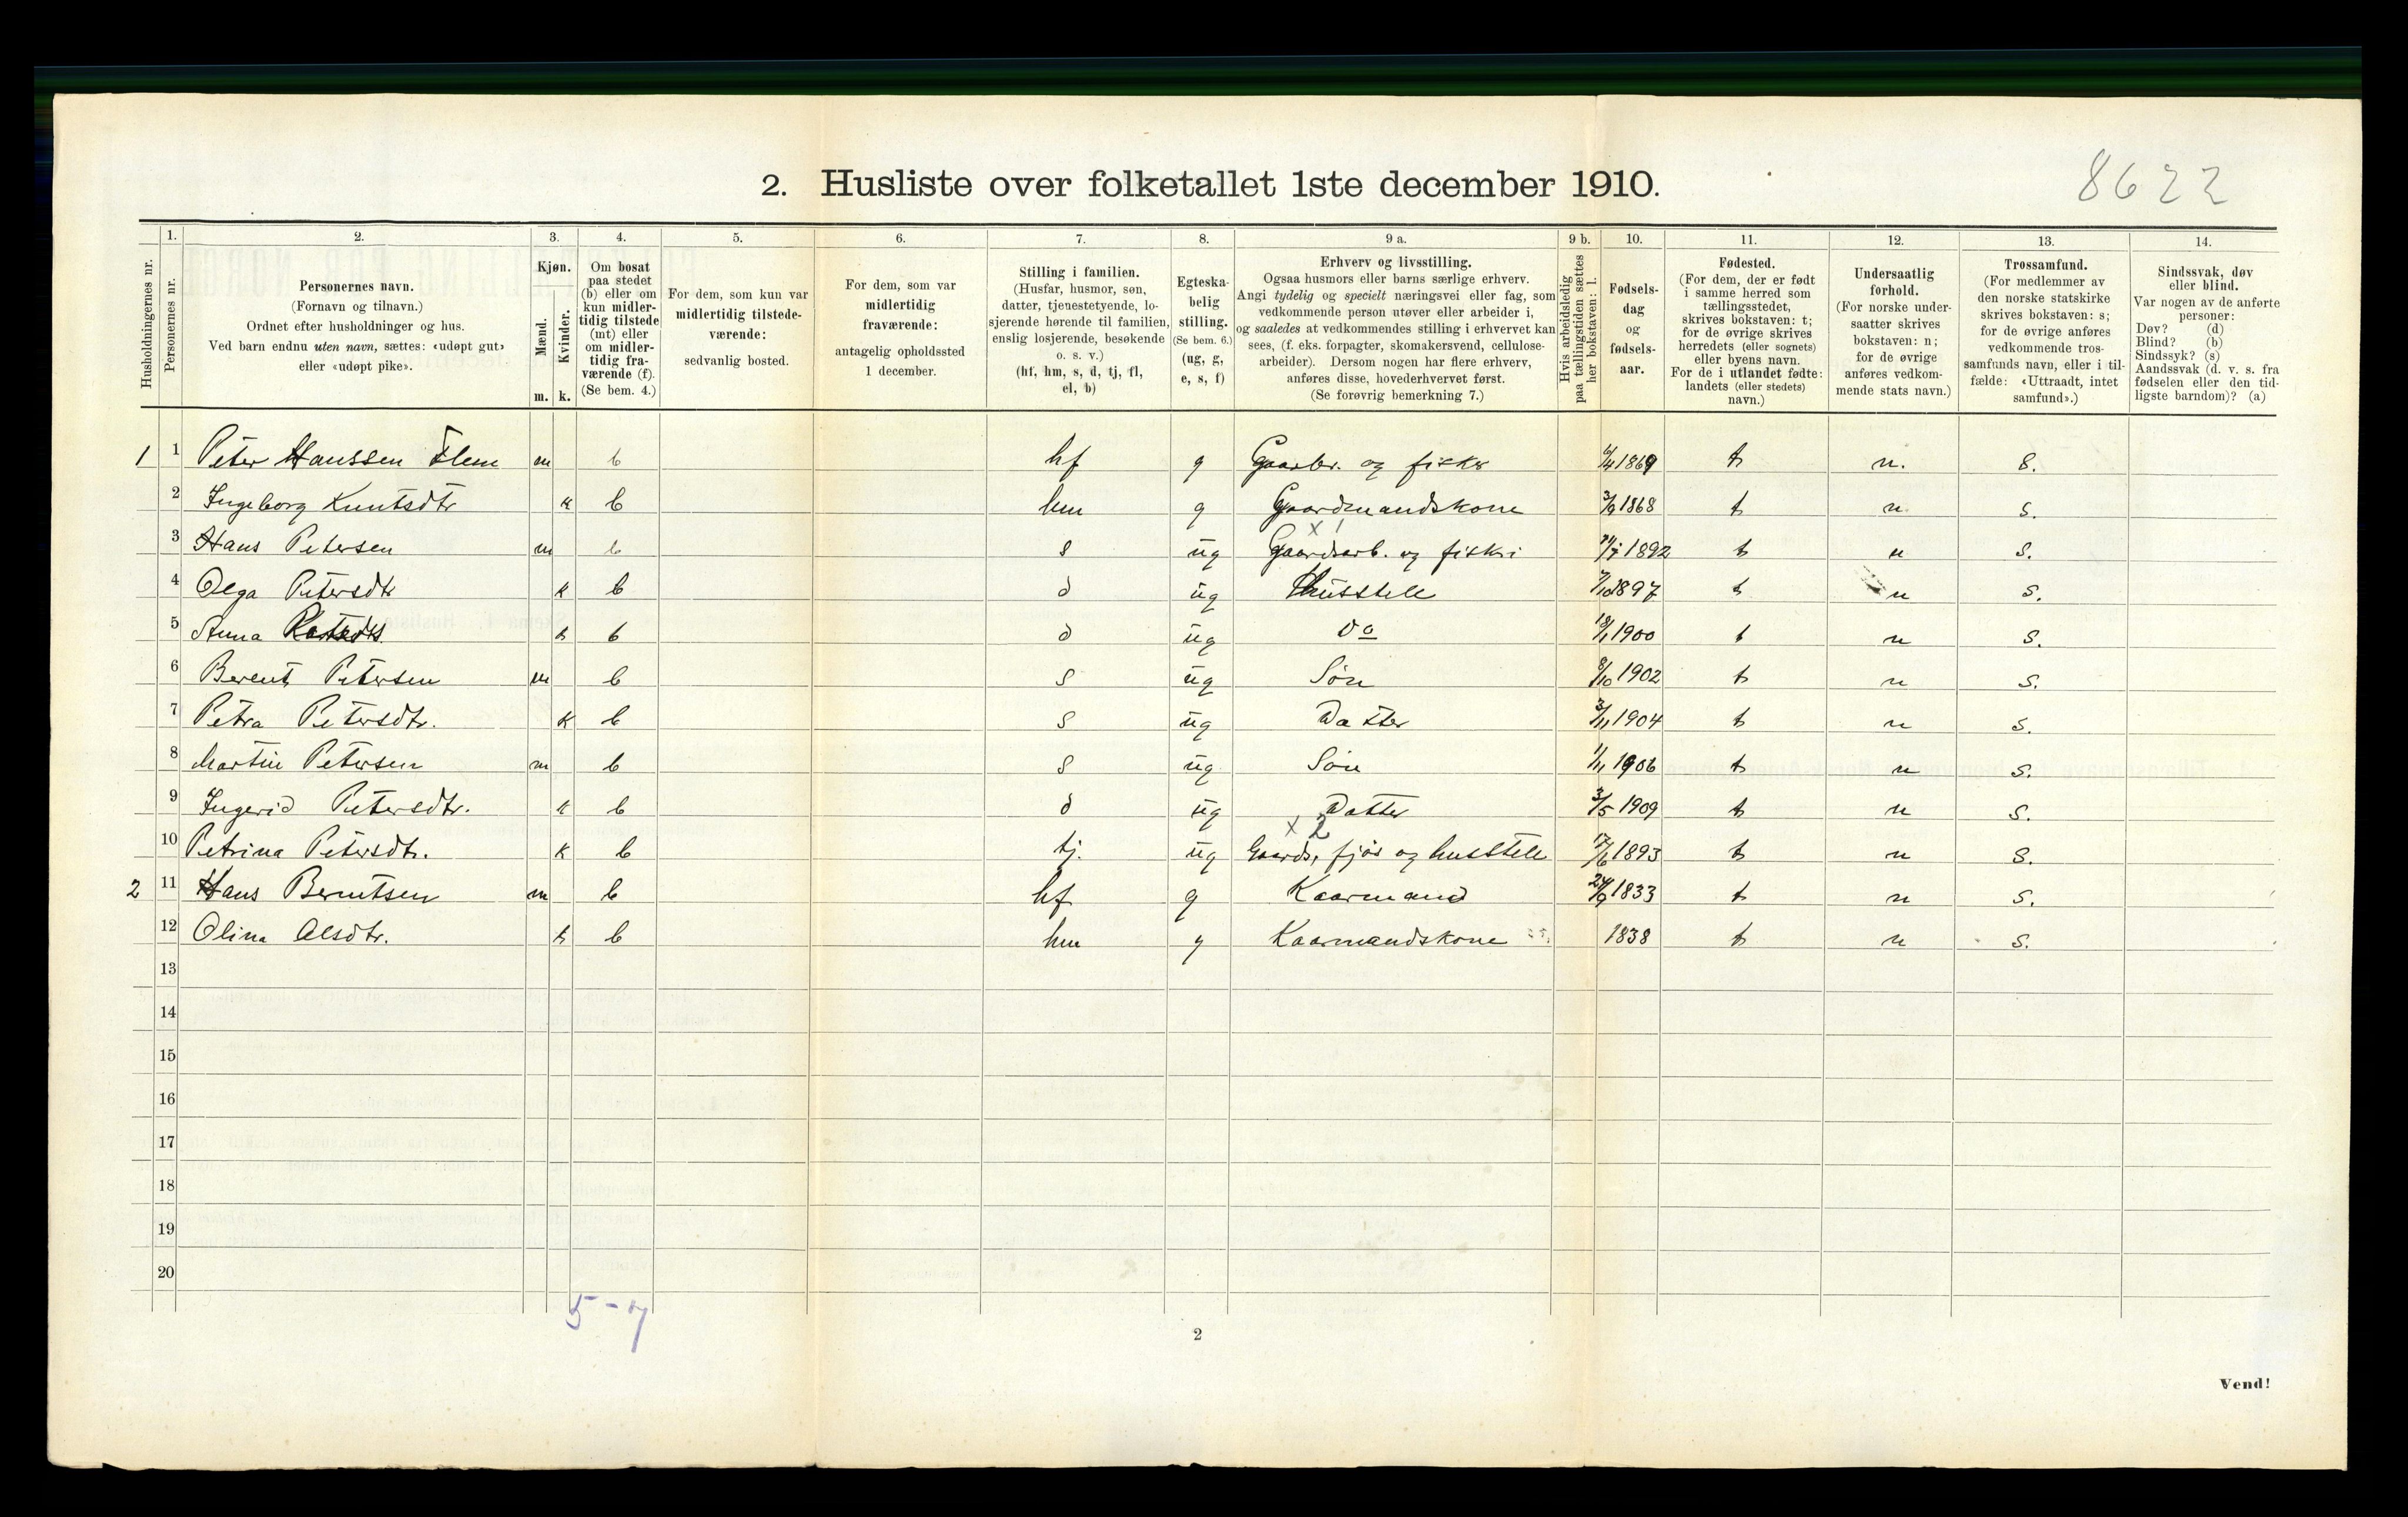 8622
2. Husliste over folketallet 1ste december 1910.
1. 2. 3. 4. 5. 6. 7. 8. 9 a. 9 b. 10. 11. 12. 13. 14.
Husholdningernes nr.
Personernes nr.
Personernes navn.
(Fornavn og tilnavn.)
Ordnet efter husholdninger og hus.
Ved barn endnu uten navn, sættes: «udøpt gut»
eller «udøpt pike».
Kjøn.
Mænd.
Kvinder.
m. k.
Om bosat
paa stedet
(b) eller om
kun midler-
tidig tilstede
(mt) eller
om midler-
tidig fra-
værende (f).
(Se bem. 4.)
For dem, som kun var
midlertidig tilstede-
værende:
sedvanlig bosted.
For dem, som var
midlertidig
fraværende:
antagelig opholdssted
1 december.
Stilling i familien.
(Husfar, husmor, søn,
datter, tjenestetyende, lo-
sjerende hørende til familien,
enslig losjerende, besøkende
o. s. v.)
(hf, hm, s, d, tj, fl,
el, b)
Egteska-
belig
stilling.
(Se bem. 6.)
(ug, g,
e, s, f)
Erhverv og livsstilling.
Ogsaa husmors eller barns særlige erhverv.
Angi tydelig og specielt næringsvei eller fag, som
vedkommende person utøver eller arbeider i,
og saaledes at vedkommendes stilling i erhvervet kan
sees, (f. eks. forpagter, skomakersvend, cellulose-
arbeider). Dersom nogen har flere erhverv,
anføres disse, hovederhvervet først.
(Se forøvrig bemerkning 7.)
Hvis arbeidsledig
paa tællingstiden sættes
her bokstaven: l.
Fødsels-
dag
og
fødsels-
aar.
Fødested.
(For dem, der er født
i samme herred som
tællingsstedet,
skrives bokstaven: t;
for de øvrige skrives
herredets (eller sognets)
eller byens navn.
For de i utlandet fødte:
landets (eller stedets)
navn.)
Undersaatlig
forhold.
(For norske under-
saatter skrives
bokstaven: n;
for de øvrige
anføres vedkom-
mende stats navn.)
Trossamfund.
(For medlemmer av
den norske statskirke
skrives bokstaven: s;
for de øvrige anføres
vedkommende tros-
samfunds navn, eller i til-
fælde: «Uttraadt, intet
samfund».)
Sindssvak, døv
eller blind.
Var nogen av de anførte
personer:
Døv? (d)
Blind? (b)
Sindssyk? (s)
Aandssvak (d. v. s. fra
fødselen eller den tid-
ligste barndom)? (a)
1 1 Peter Hanssen Flem m b hf g Gaarbr. og fisker 6/4 1869 t n. s.
2 Ingeborg Knutsdtr k b hm g Gaardmandskone 3/9 1868 t n s.
3 Hans Petersen m b s ug Gaardsarb. og fiskri 1892 t n s.
4 Olga Petersdtr k b d ug Husstell 7/10 1897 t n s.
5 Anna k b d ug do 18/1 1900 t n s.
6 Berent Petersen m b s ug Søn 8/10 1902 t n s.
7 Petra Petersdtr. k b s ug Datter 3/11 1904 t n s.
8 Martin Petersen m b s ug Søn 1/11 1906 t n s.
9 Ingerid Petersdtr. k b d ug Datter 3/5 1909 t n s.
x 2
10 Petrina Petersdtr. k b tj. ug Gaards, fjøs og husstell 17/6 1893 t n s.
2 11 Hans Berntsen m b hf g Kaarmand 24/9 1833 t n s.
12 Olina Olsdtr. k b hm g Kaarmandskone 1838 t n s.
13
14
15
16
17
18
19
20
5-7
2
Vend!